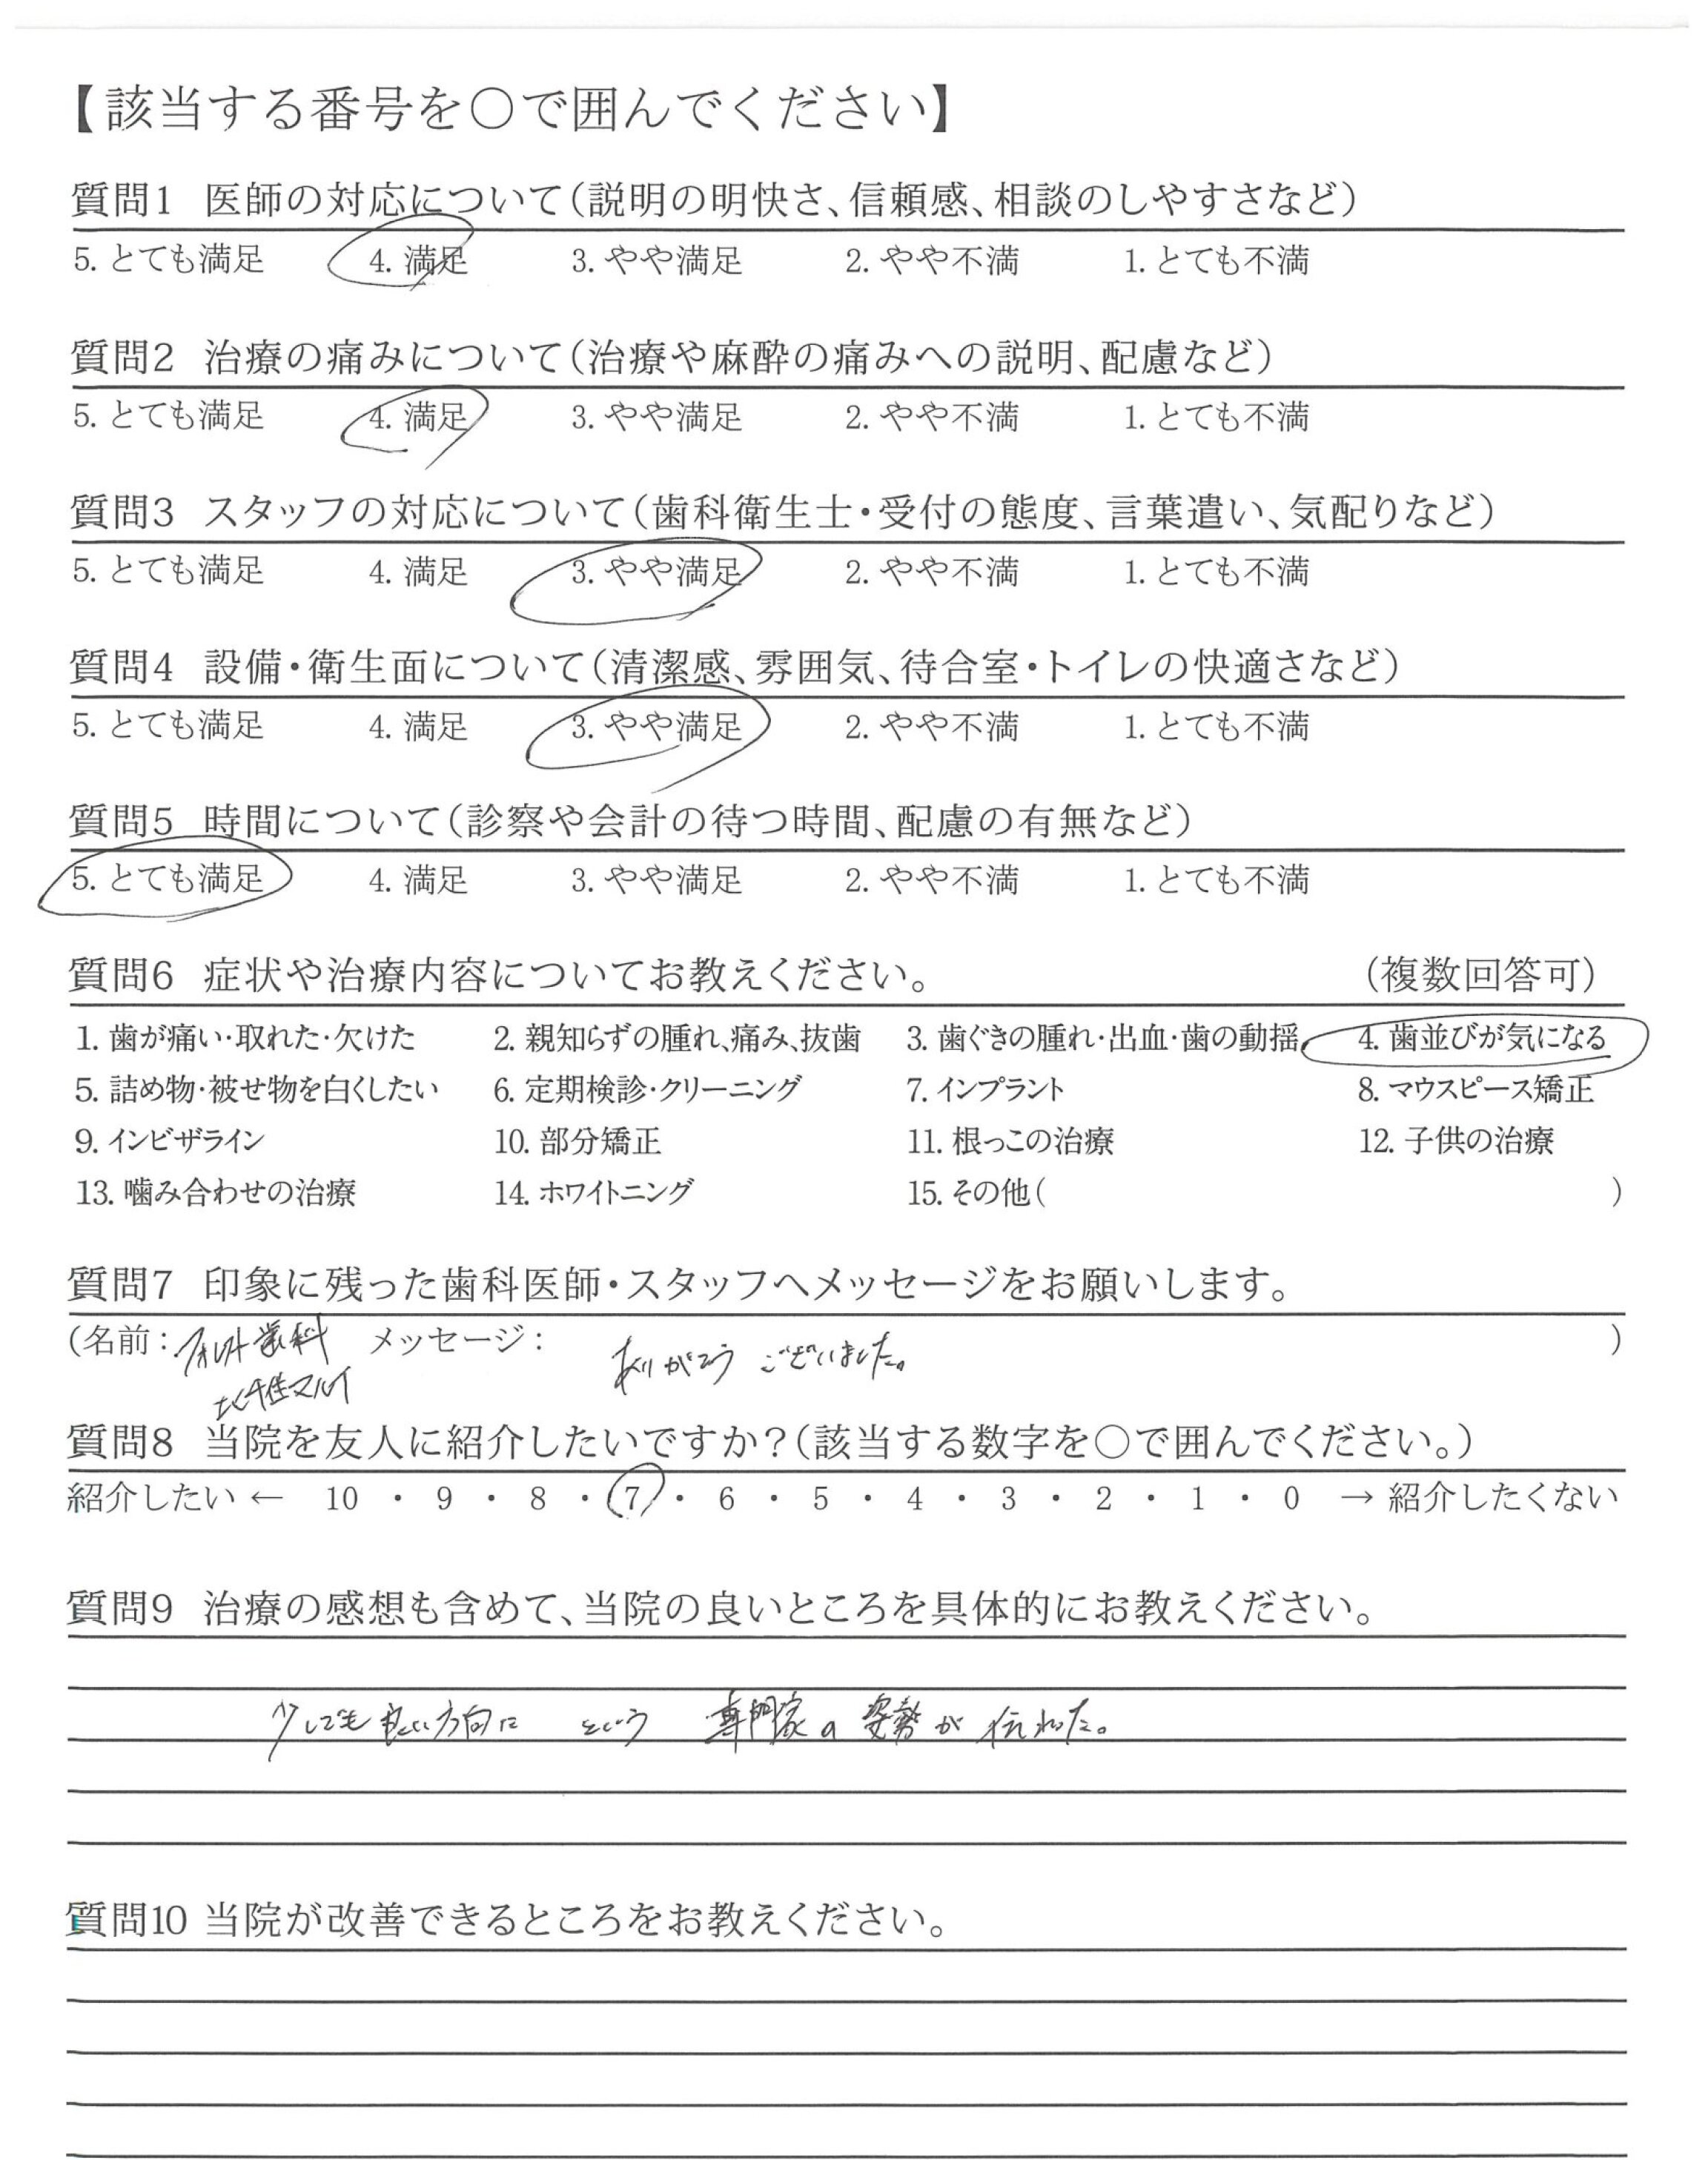 【該当する番号を○で囲んでください】
質問1 医師の対応について(説明の明快さ、信頼感、相談のしやすさなど)
5. とても満足 4. 満足 3. やや満足 2. やや不満 1. とても不満
質問2 治療の痛みについて(治療や麻酔の痛みへの説明、配慮など)
5. とても満足 4. 満足 3. やや満足 2. やや不満 1. とても不満
質問3 スタッフの対応について(歯科衛生士・受付の態度、言葉遣い、気配りなど)
5. とても満足 4. 満足 3. やや満足 2. やや不満 1. とても不満
質問4 設備・衛生面について(清潔感、雰囲気、待合室・トイレの快適さなど)
5. とても満足 4. 満足 3. やや満足 2. やや不満 1. とても不満
質問5 時間について(診察や会計の待つ時間、配慮の有無など)
5. とても満足 4. 満足 3. やや満足 2. やや不満 1. とても不満
質問6 症状や治療内容についてお教えください。 (複数回答可)
1. 歯が痛い・取れた・欠けた 2. 親知らずの腫れ、痛み、抜歯 3. 歯ぐきの腫れ・出血・歯の動揺 4. 歯並びが気になる
5. 詰め物・被せ物を白くしたい 6. 定期検診・クリーニング 7. インプラント 8. マウスピース矯正
9. インビザライン 10. 部分矯正 11. 根っこの治療 12. 子供の治療
13. 噛み合わせの治療 14. ホワイトニング 15. その他( )
質問7 印象に残った歯科医師・スタッフへメッセージをお願いします。
(名前: 歯科 メッセージ: ありがとうございました。 )
北千住マルイ
質問8 当院を友人に紹介したいですか?(該当する数字を○で囲んでください。)
紹介したい ← 10 ・ 9 ・ 8 ・ 7 ・ 6 ・ 5 ・ 4 ・ 3 ・ 2 ・ 1 ・ 0 → 紹介したくない
質問9 治療の感想も含めて、当院の良いところを具体的にお教えください。
少しでも良い方向に という 専門家の姿勢が伝わった。
質問10 当院が改善できるところをお教えください。